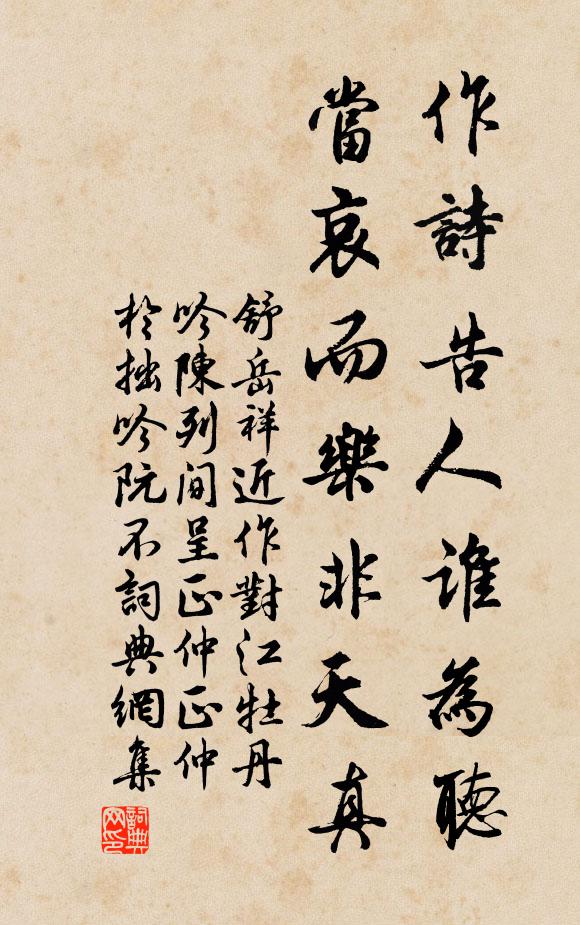 作詩告人誰為聽
當哀而樂非天真
舒岳祥近作對江牡丹
吟陳列間呈正仲正仲
於拙吟阮不詞典網集
詞典
网印